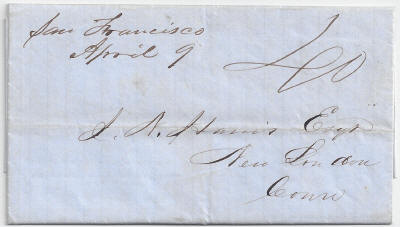 San Francisco
April 9
40
J. R. Harris Esqr
New London
Conn